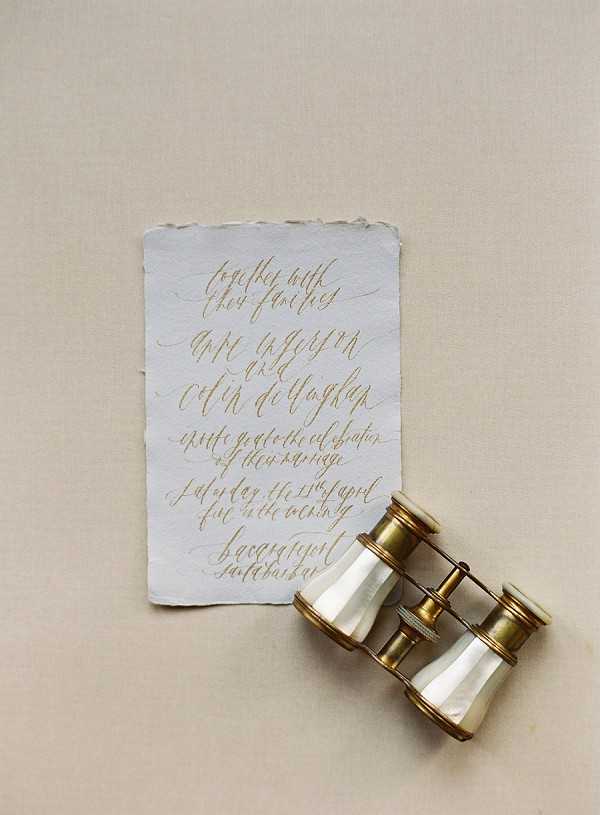 together with
their families
anne ingerson
and
colin dillingham
invite you to the celebration
of their marriage
saturday, the 21st of april
five in the evening
bacara resort
santa barbara